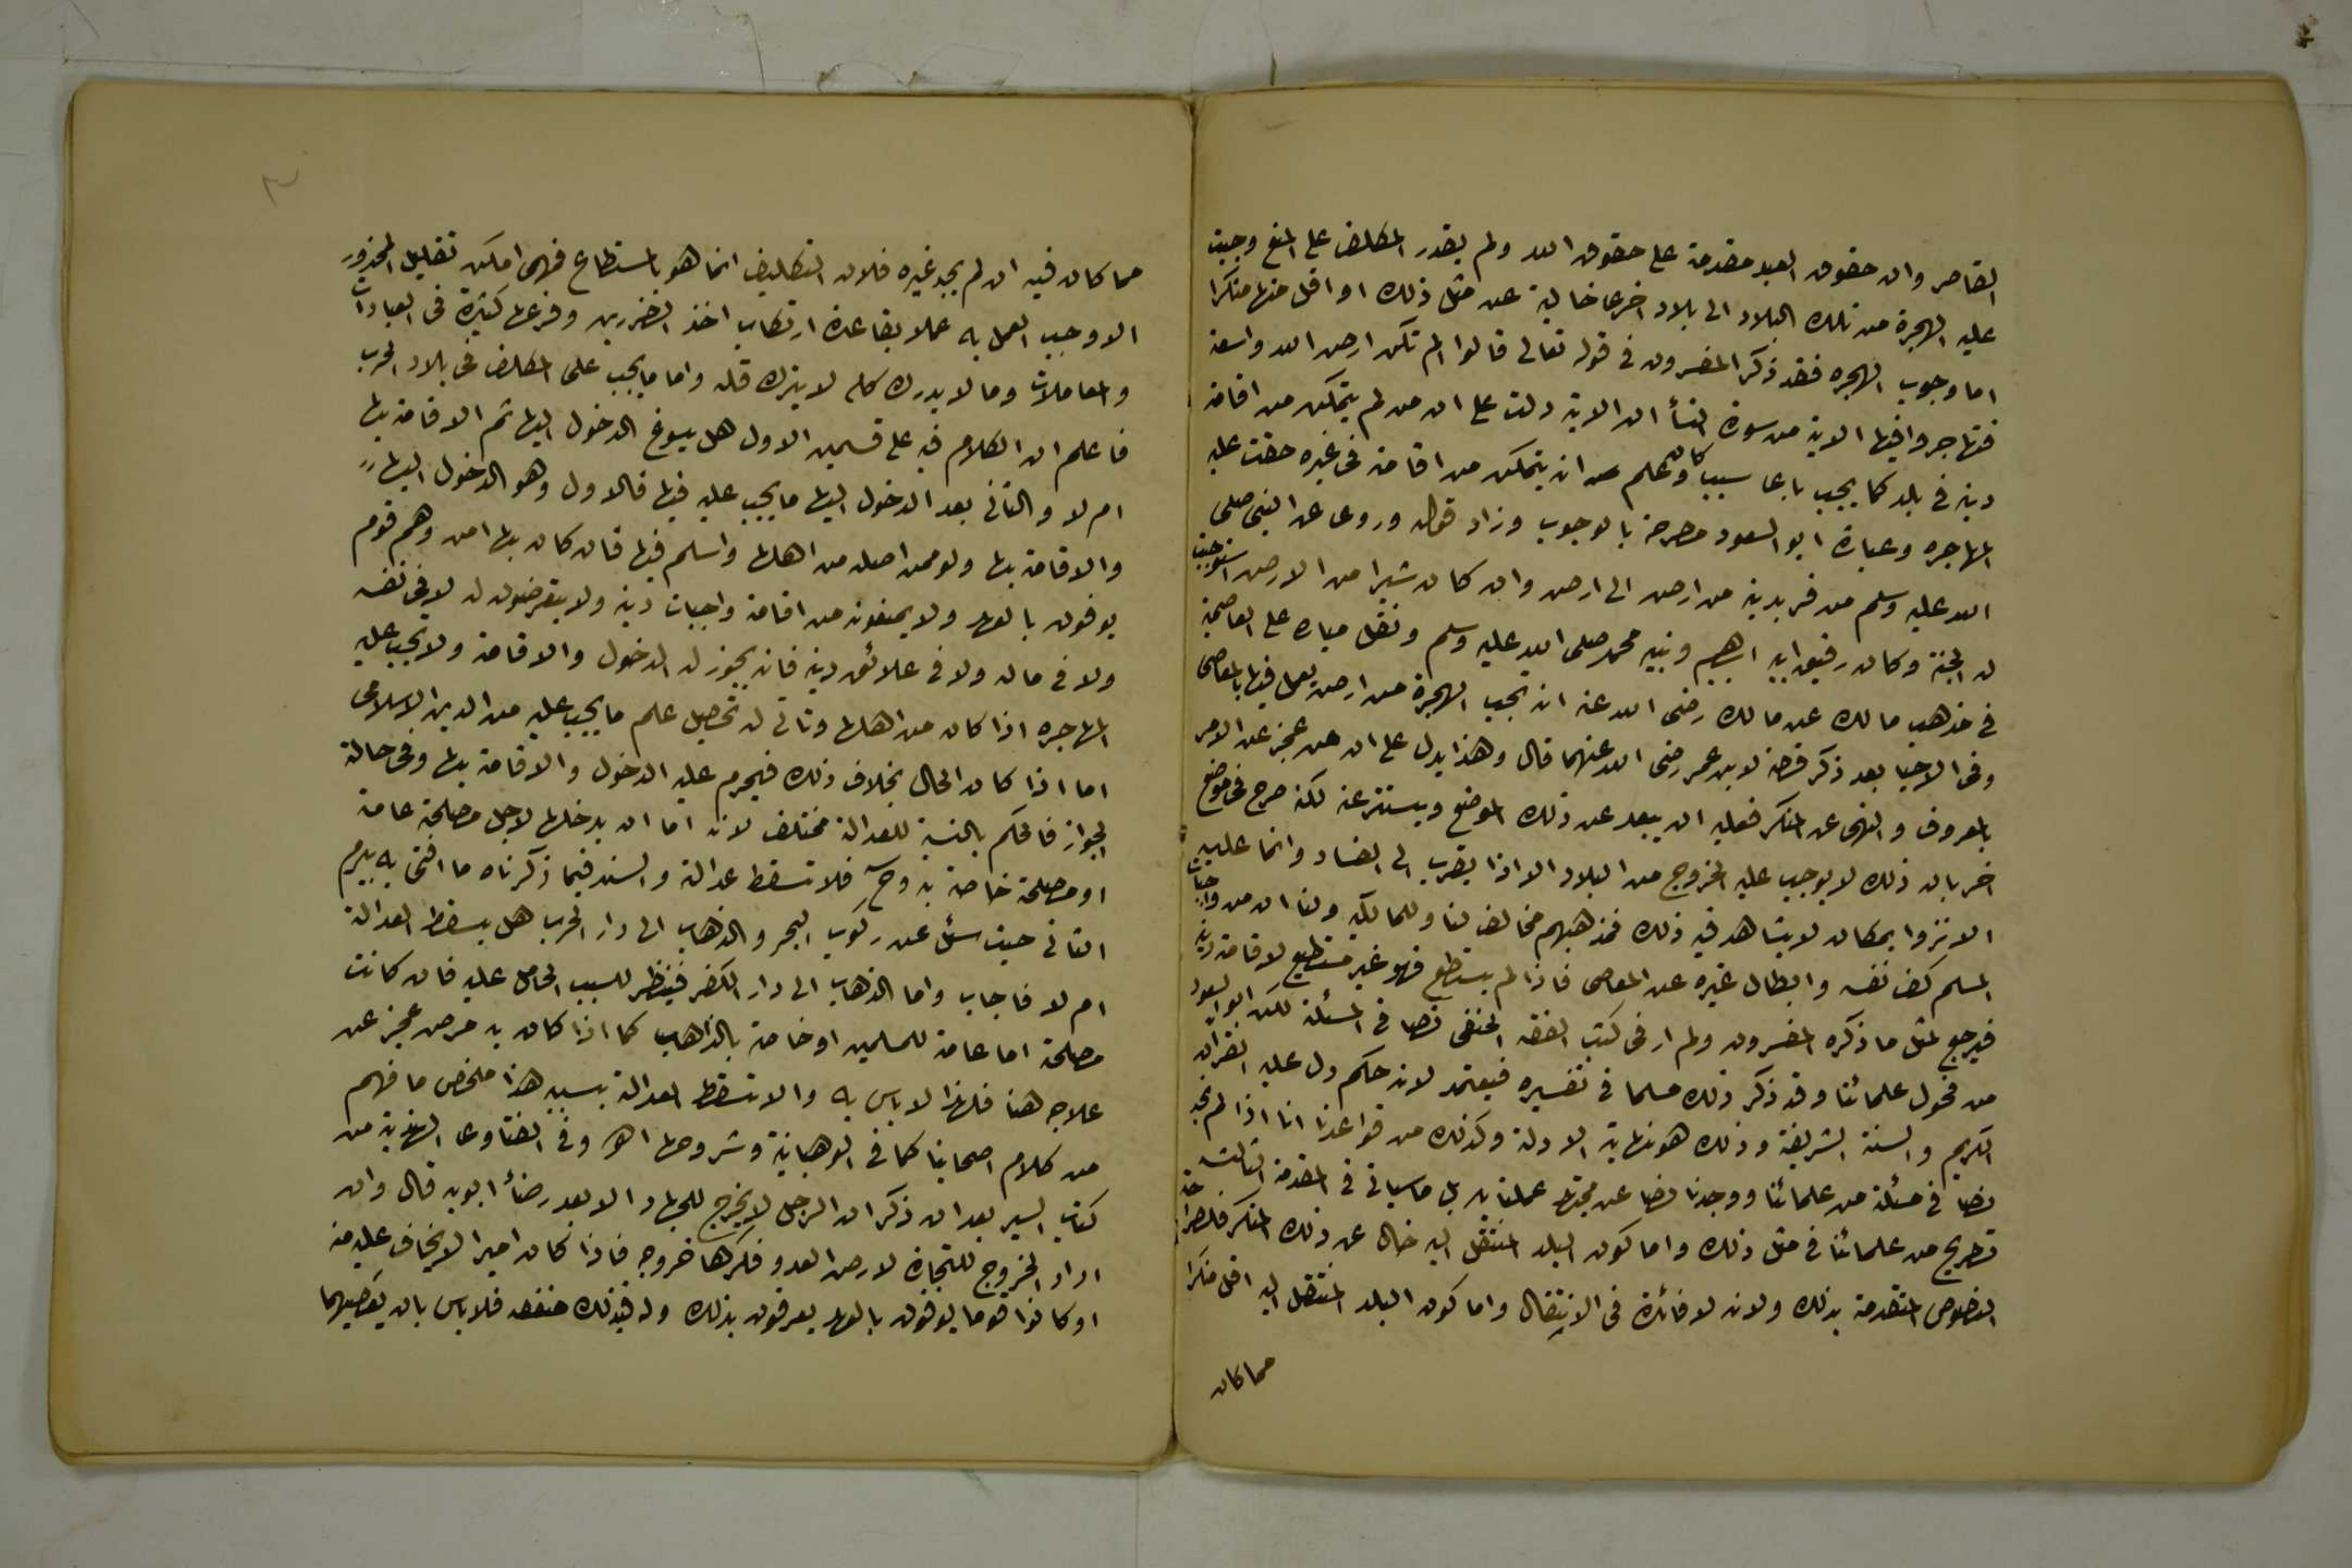 القاصر وان حقوق العبد مقدمة على حقوق الله ولم يقدر المكلف على المنع وجبت
عليه الهجرة من تلك البلاد الى بلاد اخرى خالية عن مثل ذلك او اقل منها منكرا
اما وجوب الهجره فقد ذكر المفسرون في قوله تعالى قالوا الم تكن ارض الله واسعة
فتهاجروا فيها الاية من سورة النسأ ان الاية دلت على ان من لم يتمكن من اقامة
دينه في بلد كما يجب باى سبب كان وعلم انه يتمكن من اقامته في غيره حقت عليه
المهاجره وعبارة ابو السعود مصرحة بالوجوب وزاد قوله وروى عن النبي صلى
الله عليه وسلم من فر بدينه من ارض الى ارض وان كان شبرا من الارض استوجبت
له الجنة وكان رفيق ابيه ابراهيم ونبيه محمد صلى الله عليه وسلم ونقل مياره على العاصمية
في مذهب مالك عن مالك رضى الله عنه انه تجب الهجرة من ارض يعمل فيها بالمعاصى
وفى الاحيا بعد ذكر قصة لابن عمر رضى الله عنهما قال وهذا يدل على ان من عجز عن الامر
بالمعروف والنهى عن المنكر فعليه ان يبعد عن ذلك الموضع ويستتر عنه لكنه صرح في موضع
اخر بان ذلك لا يوجب عليه الخروج من البلاد الا اذا يقرب الى الفساد وانما عليه
الانزوا بمكان لا يشاهد فيه ذلك فمذهبهم مخالف لنا وللمالكية ولنا ان من واجبات
المسلم كف نفسه وابطال غيره عن المعاصى فاذا لم يستطع فهو غير مستطيع لاقامة دينه
فيرجع لمثل ما ذكره المفسرون ولم ار فى كتب الفقه الحنفى نصا في المسئلة لكن ابو السعود
من فحول علمائنا وقد ذكر ذلك مسلما في تفسيره فيعتمد لانه حكم دل عليه القران
الكريم والسنة الشريفة وذلك هو نهاية الادلة وكذلك من قواعدنا انا اذا لم نجد
نصا في مسئلة من علمائنا ووجدنا نصا عن مجتهد عملنا به بل ما سياتى في المقدمة الثالثة
تصريح من علمائنا في مثل ذلك واما كون البلد المنتقل اليه خال عن ذلك المنكر فلصراحة
النصوص المتقدمة بذلك ولانه لا فائدة فى الانتقال واما كون البلد المنتقل اليه اقل منكرا
مما كان
مما كان فيه ان لم يجد غيره فلان التكليف انما هو بالمستطاع فمهى امكن تقليل المحذور
الا وجب العمل به عملا بقاعدة ارتكاب اخف الضررين وفرعها كثيرة في العبادات
والمعاملات وما لا يدرك كله لا يترك قله واما ما يجب على المكلف فى بلاد الحرب
فاعلم ان الكلام فيه على قسمين الاول هل يسوغ الدخول اليها ثم الاقامة بها
ام لا والثانى بعد الدخول اليها ما يجب عليه فيها فالاول وهو الدخول اليها
والاقامة بها ولو ممن اصله من اهلها واسلم فيها فان كان بها امن وهم قوم
يوفون بالعهد ولا يمنعونه من اقامة واجبات دينه ولا يتعرضون له لا فى نفسه
ولا في ماله ولا في علائق دينه فانه يجوز له الدخول والاقامة ولا تجب عليه
المهاجره اذا كان من اهلها وتأتى له تحصيل علم ما يجب عليه من الدين الاسلامى
اما اذا كان الحال بخلاف ذلك فيحرم عليه الدخول والاقامة بها وفى حالة
الجواز فالحكم بالنسبة للعدالة مختلف لانه اما ان يدخلها لاجل مصلحة عامة
او مصلحة خاصة به وح فلا تسقط عدالته والسند فيما ذكرناه ما افتى به بيرم
الثانى حيث سئل عن ركوب البحر والذهاب الى دار الحرب هل يسقط العدالة
ام لا فاجاب واما الذهاب الى دار الكفر فينظر للسبب الحامل عليه فان كانت
مصلحة اما عامة للمسلمين او خاصة بالذاهب كما اذا كان به مرض عجز عن
علاجه هنا فلهذا لا باس به والا تسقط العدالة بسببه هذا ملخص ما فهم
من كلام اصحابنا كما في الوهبانية وشروحها اهـ وفي الفتاوى الهندية من
كتاب السير بعد ان ذكر ان الرجل لا يخرج للجهاد الا بعد رضأ ابويه قال وان
اراد الخروج للتجارة لارض العدو فكرها خروجه فاذا كان اميرا لا يخاف عليه منه
او كانوا قوما يوفون بالعهد يعرفون بذلك وله فى ذلك منفعه فلا باس بان يعصيهما